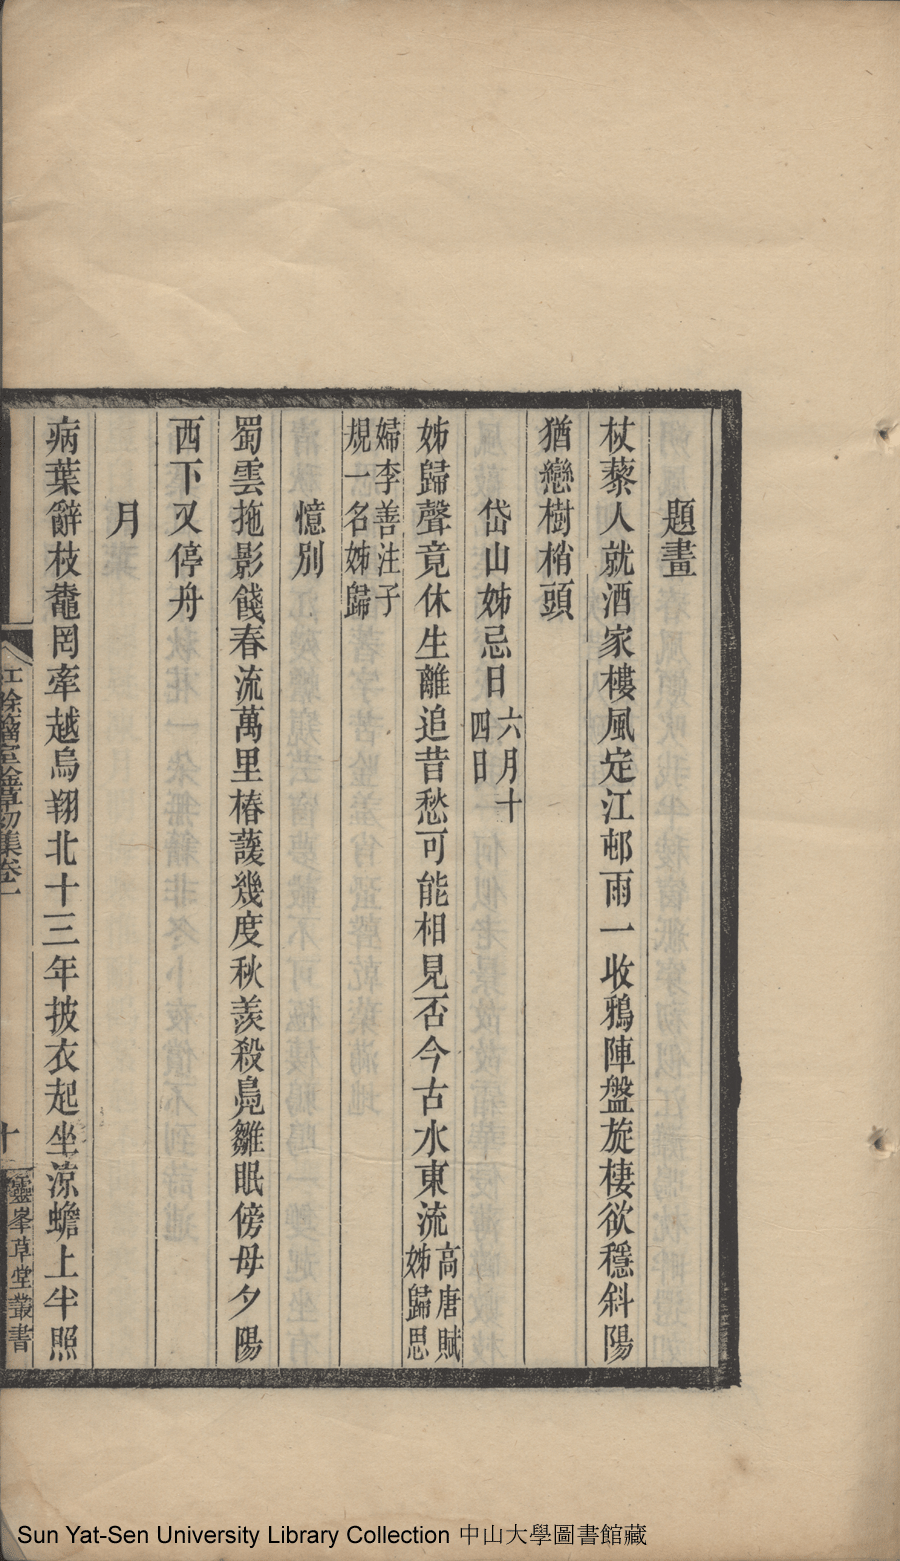 題畫
杖藜人就酒家樓風定江邨雨一收鴉陣盤旋棲欲穩斜陽
猶戀樹梢頭
岱山姊忌日六月十
四日
姊歸聲竟休生離追昔愁可能相見否今古水東流高唐賦
姊歸思
婦李善注子
規一名姊歸
憶別
蜀雲拖影餞春流萬里椿護幾度秋羨殺鳧雛眠傍母夕陽
西下又停舟
月
病葉辭枝龕罔牽越烏翔北十三年披衣起坐涼蟾上半照
室吟草初集卷一
十
靈峯草堂叢書
Sun Yat-Sen University Library Collection 中山大學圖書館藏